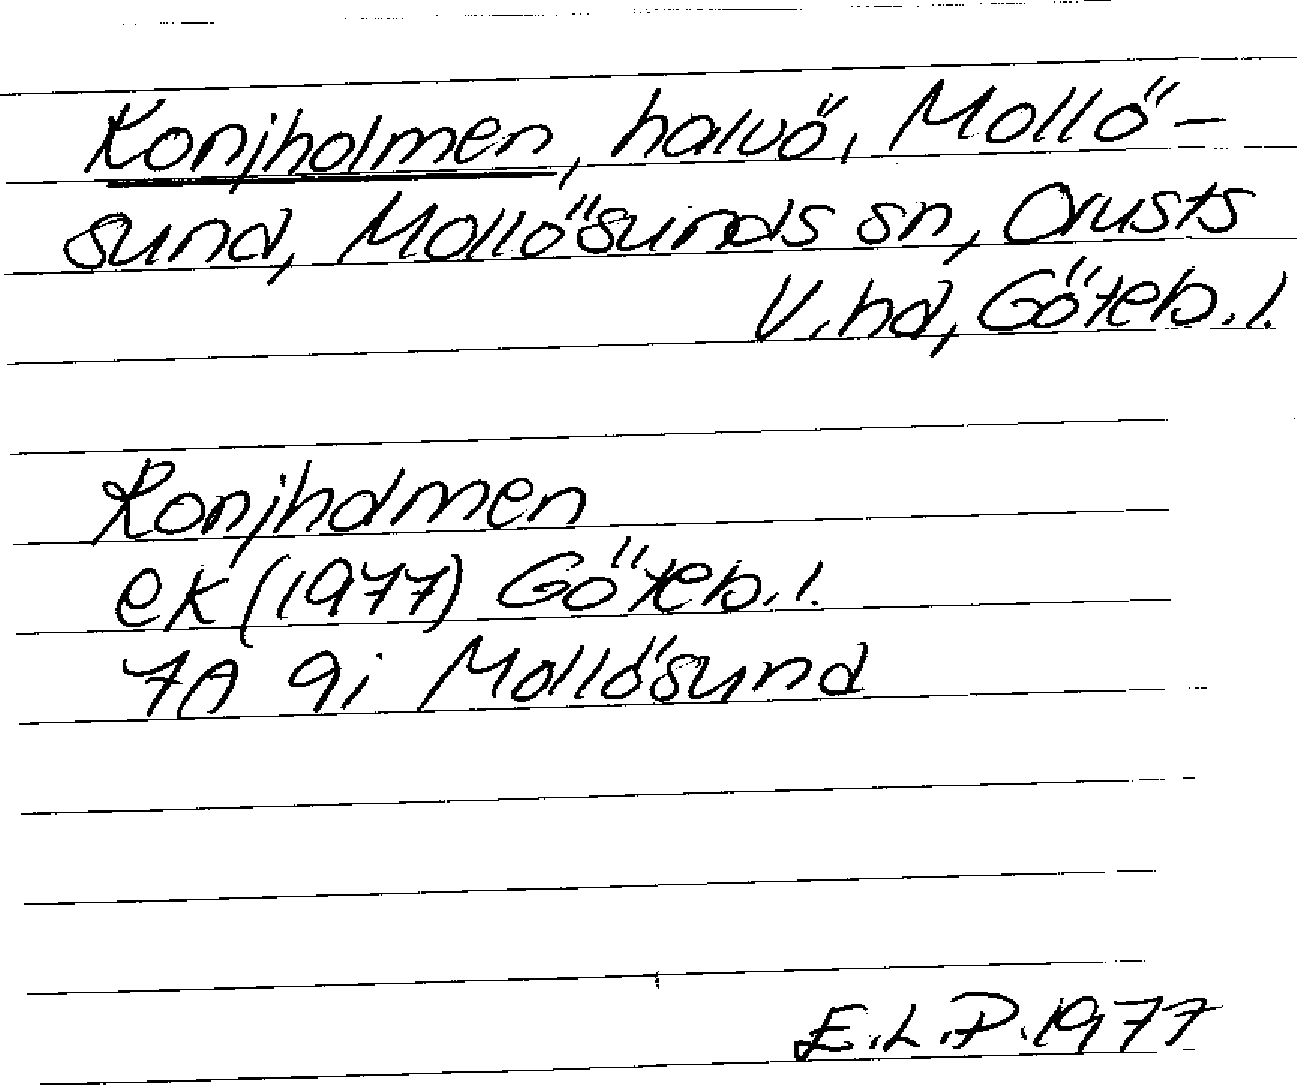 Konjholmen, halvö, Mollö-
sund, Mollösunds sn, Orusts
V. hd, Göteb. l.
Konjholmen
ek (1977) Göteb. l.
7A 9i Mollösund
E.L.P. 1977